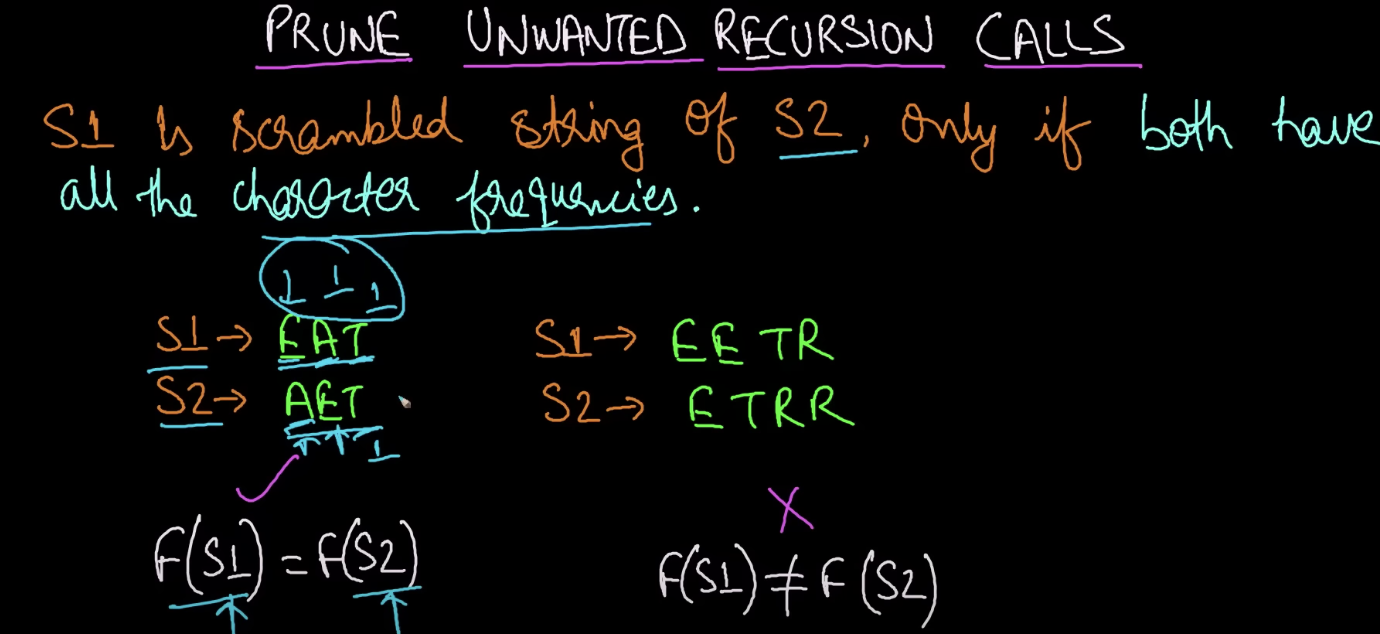 PRUNE UNWANTED RECURSION CALLS
S1 Is scrambled string of S2, only if both have
all the character frequencies.
1 1 1
S1 → EAT
S2 → AET
1
S1 → EETR
S2 → ETRR
F(S1) = F(S2)
F(S1) ≠ F(S2)